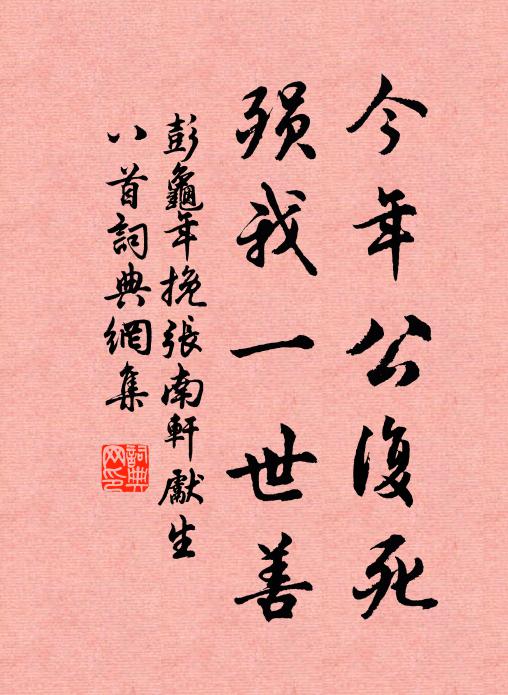 今年公復死
殞我一世善
彭龜年挽張南軒獻生
八首詞典網集
詞典
网印